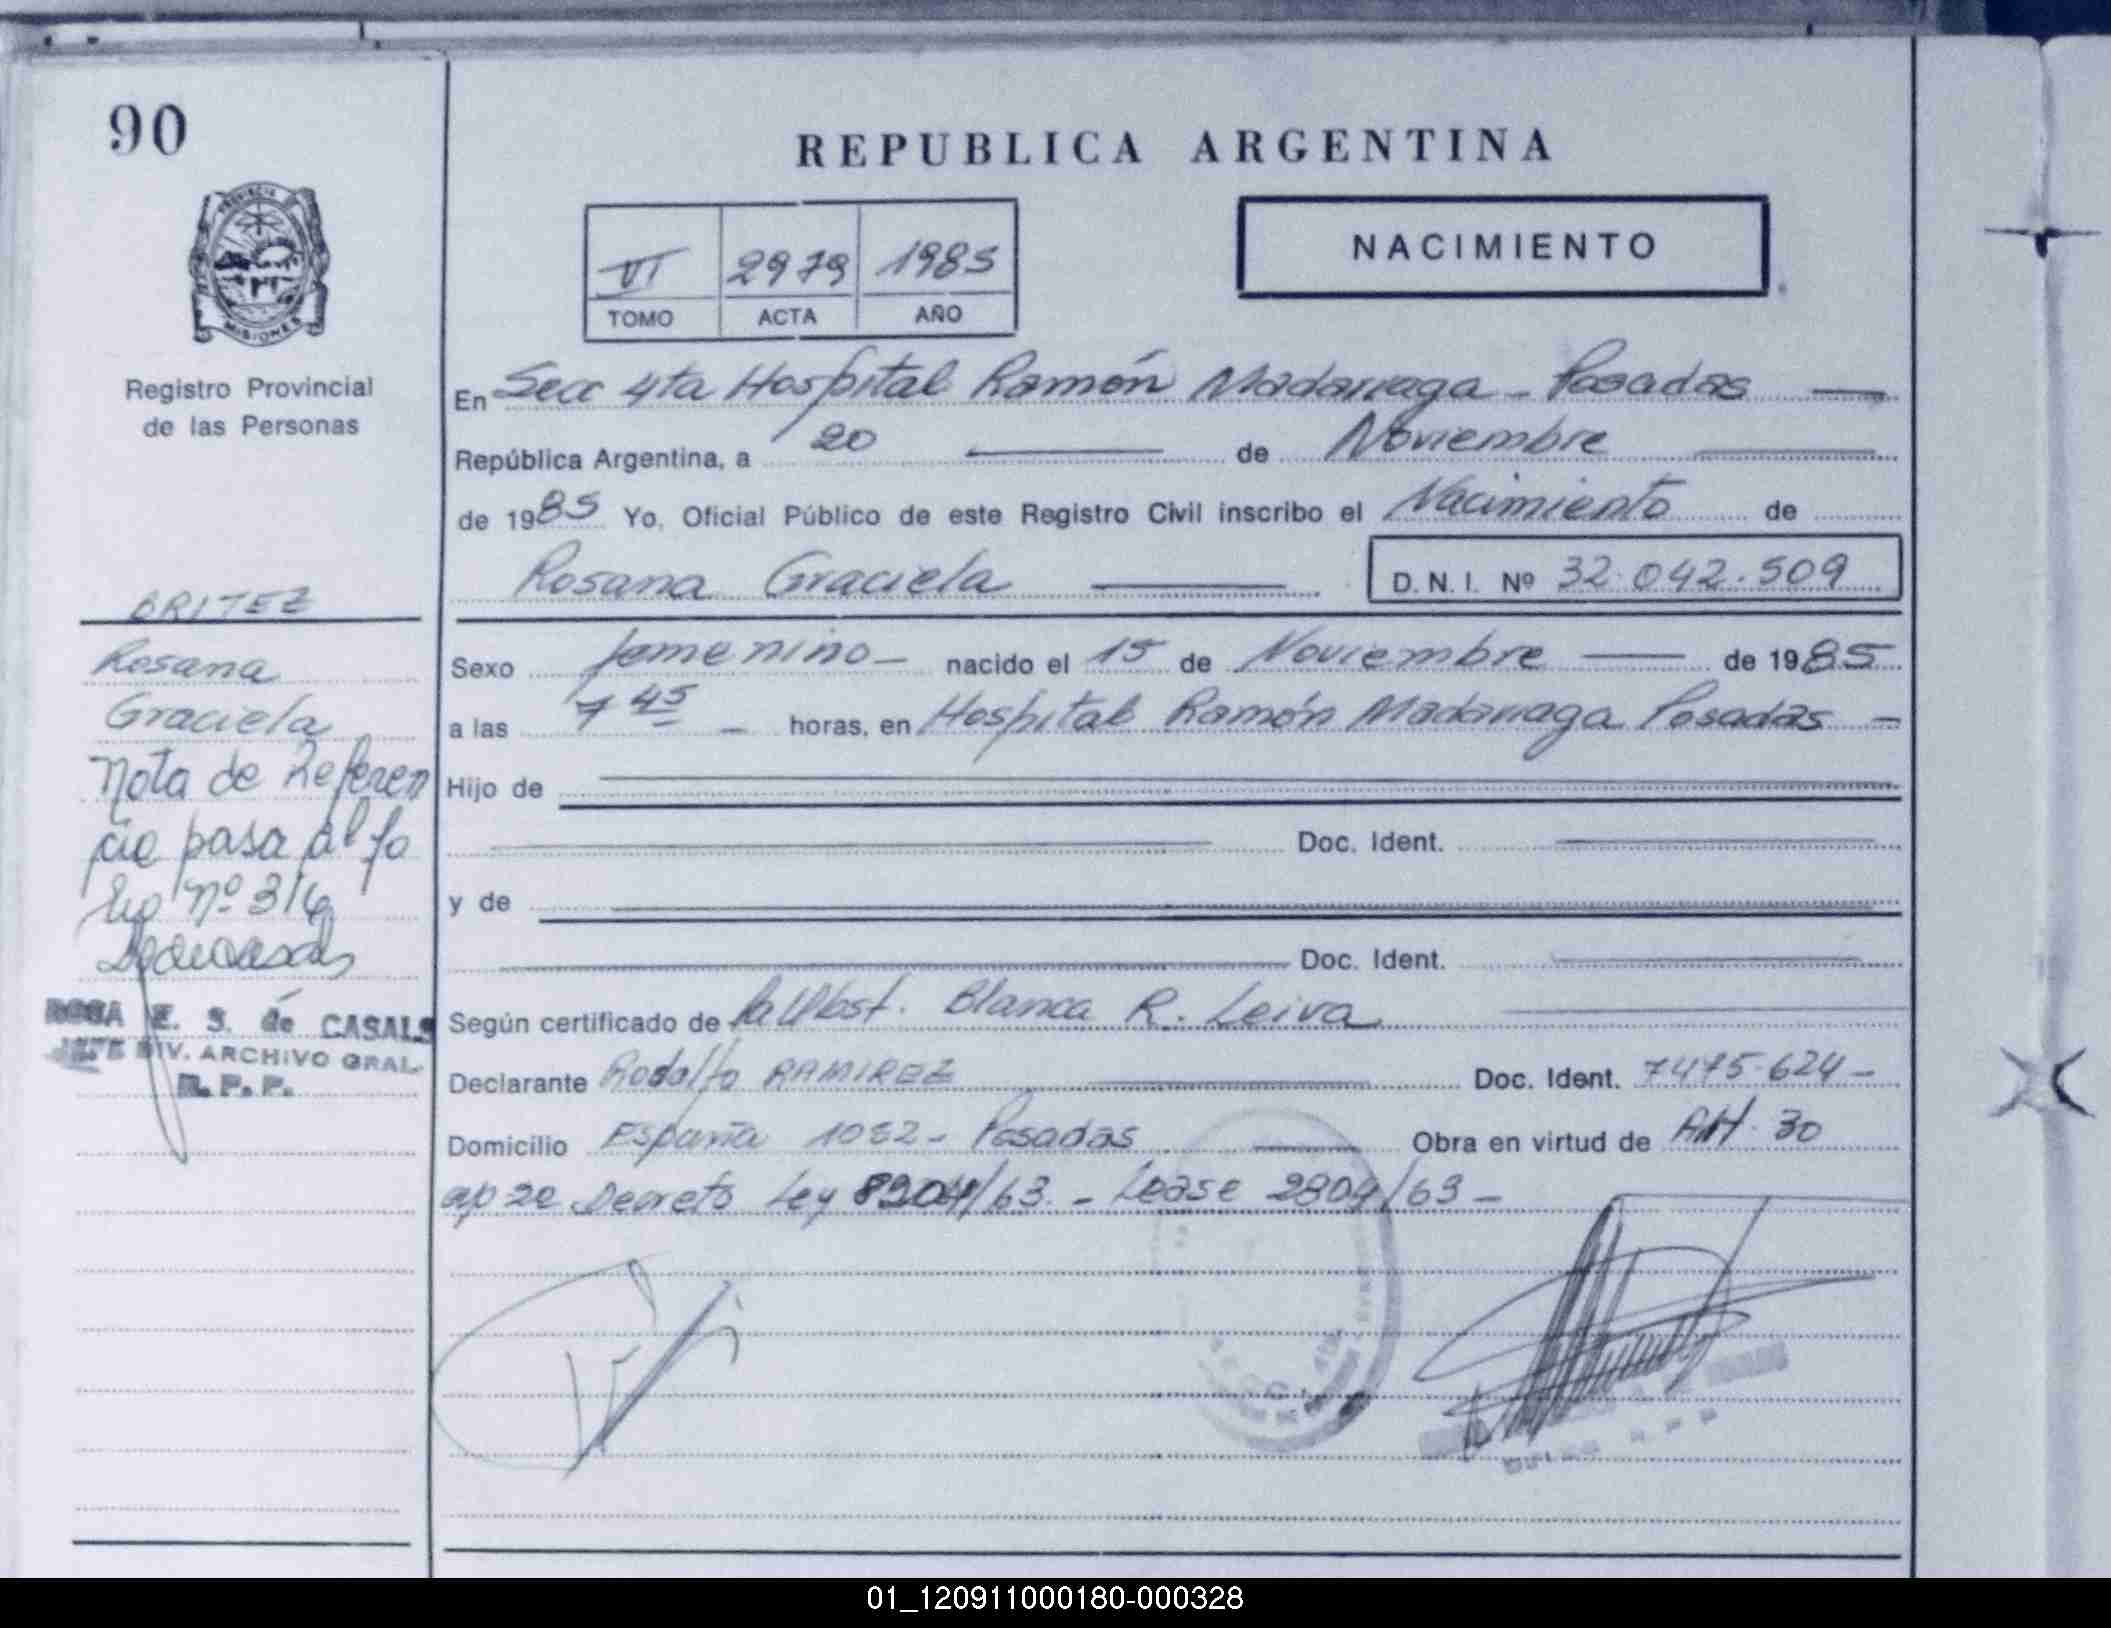 90
REPUBLICA ARGENTINA
PROVINCIA DE
MISIONES
Registro Provincial
de las Personas
VI 2979 1985
TOMO ACTA AÑO
NACIMIENTO
En Secc 4ta Hospital Ramón Madariaga - Posadas
República Argentina, a 20 de Noviembre
de 1985 Yo, Oficial Público de este Registro Civil inscribo el Nacimiento de
Rosana Graciela D.N.I. Nº 32.042.509
BRITEZ
Rosana
Graciela
Nota de Referen
cia pasa al fo
lio Nº 316
ROSA E. S. de CASALS
JEFE DIV. ARCHIVO GRAL.
R. P. P.
Sexo femenino - nacido el 15 de Noviembre de 1985
a las 7 45 - horas, en Hospital Ramón Madariaga Posadas -
Hijo de
Doc. Ident.
y de
Doc. Ident.
Según certificado de la Obst. Blanca R. Leiva
Declarante Rodolfo RAMIREZ Doc. Ident. 7475.624 -
Domicilio España 1032 - Posadas Obra en virtud de Art. 30
ap 2e Decreto Ley 8204/63. - Lease 2804/63 -
01_120911000180-000328